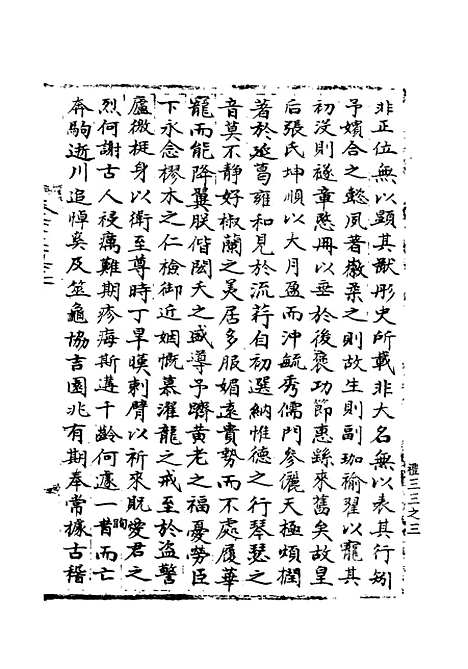 非正位無以顯其猷彤史所載非大名無以表其行矧
予嬪合之懿夙著徽柔之則故生則副珈褕翟以寵其
初没則䆳章愍冊以垂於後褒功節惠繇來舊矣故皇
后張氏坤順以大月盈而沖毓秀儒門參儷天極頍橺
著於逛葛雍和見於流荇自初選納惟德之行琴瑟之
音莫不静好椒蘭之美居多服媚遠貴勢而不處履華
寵而能降翼朕偕闼天之盛導予躋黄老之福憂勞臣
下永念樛木之仁檢御近姻慨慕濯龍之戒至於盗警
廬徼挺身以衛至尊時丁旱暵刺臂以祈來貺愛君之
烈何謝古人祲癘難期疹海斯遘千齡何遽一昔而亡
奔駒逝川追悼奚及筮龜協吉園兆有期奉常據古稽
徇
禮三三之三